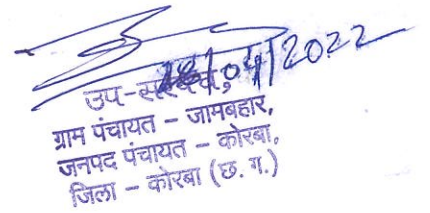 /04/2022
उप-सरपंच,
ग्राम पंचायत – जामबहार,
जनपद पंचायत – कोरबा,
जिला – कोरबा (छ. ग.)